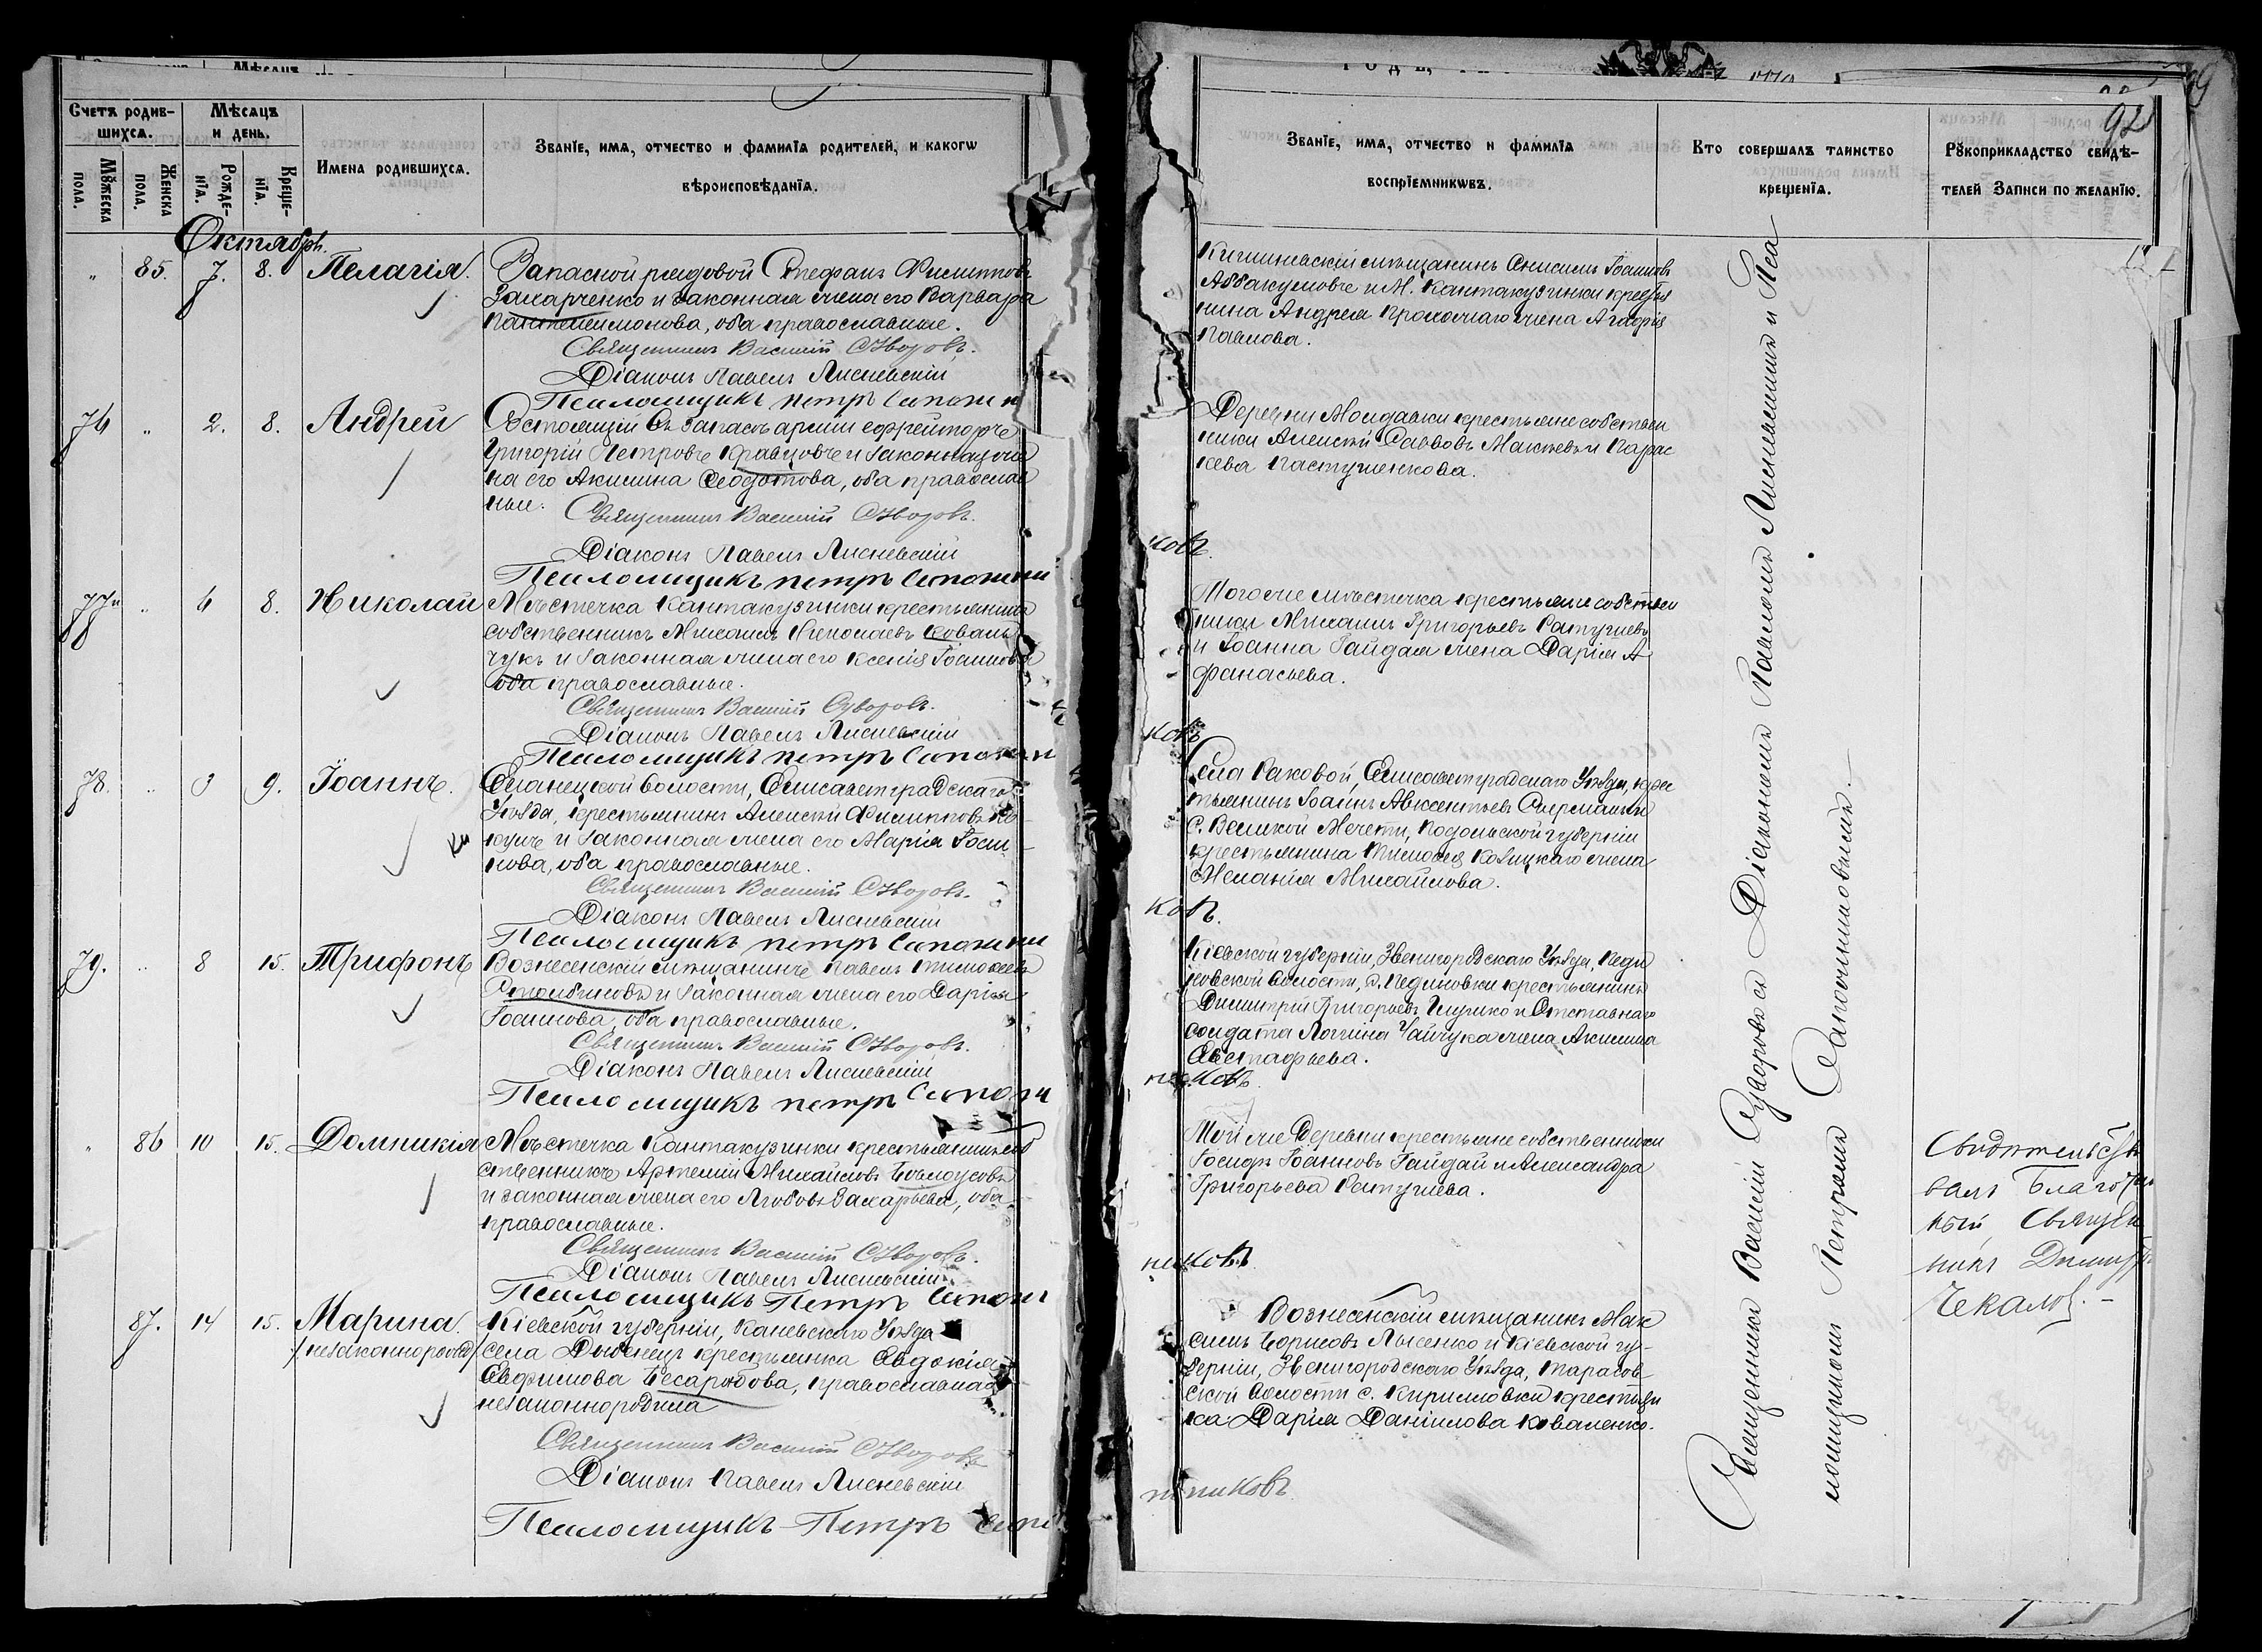 Счетъ родив-
шихся.
Мѣсяцъ
и день.
Мꙋжеска
пола.
Женска
пола.
Рожде-
нїа.
Креще-
нїа.
Имена родившихся.
Званїе, имя, отчество и фамилїа родителей, и какогѡ
вѣроисповѣданїа.
Октябрь.
" 85. 7. 8. Пелагія.
Запасной рядовой Стефанъ Филипповъ
Захарченко и законная жена его Варвара
Пантелеимонова, оба православные.
Священникъ Василій Суворовъ.
Діаконъ Павелъ Лисневскій
Псаломщикъ Петръ
76 " 2. 8. Андрей
Состоящій въ запасѣ арміи ефрейторъ
Григорій Петровъ Кравцовъ и законная же
на его Акилина Ѳеодотова, оба православ
ные.
Священникъ Василій Суворовъ.
Діаконъ Павелъ Лисневскій
Псаломщикъ Петръ
77 " 6 8. Николай
Мѣстечка Кантакузинки крестьянинъ
собственникъ Михаилъ Николаевъ Коваль
чукъ и законная жена его Ксенія Іоаннова
оба православные.
Священникъ Василій Суворовъ.
Діаконъ Павелъ Лисневскій
Псаломщикъ Петръ
78. " 3 9. Іоаннъ.
Еланецкой волости, Елисаветградскаго
Уѣзда, крестьянинъ Алексѣй Филипповъ
и законная жена его Марія Іоан
нова, оба православные.
Священникъ Василій Суворовъ.
Діаконъ Павелъ Лисневскій
Псаломщикъ Петръ
79. " 8 15. Трифонъ
Вознесенскій мѣщанинъ Павелъ Тимоѳеевъ
Столбиковъ и законная жена его Дарія
Іоаннова, оба православные.
Священникъ Василій Суворовъ.
Діаконъ Павелъ Лисневскій
Псаломщикъ Петръ
" 86 10 15. Домникія
Мѣстечка Кантакузинки крестьянинъ соб
ственникъ Артемій Михайловъ Бѣлоусовъ
и законная жена его Любовь Захарьева, оба
православные.
Священникъ Василій Суворовъ.
Діаконъ Павелъ Лисневскій
Псаломщикъ Петръ
87. 14 15. Марина.
/незаконнорожд/
Кіевской губерніи, Каневскаго Уѣзда
села крестьянка Евдокія
Евфимова православная
незаконнородила
Священникъ Василій Суворовъ
Діаконъ Павелъ Лисневскій
Псаломщикъ Петръ
92
Званїе, имя, отчество и фамилїа
воспрїемникѡвъ.
Кто совершалъ таинство
крещенїа.
Рꙋкоприкладство свидѣ-
телей записи по желанїю.
Кишиневскій мѣщанинъ Анисимъ Іоанновъ
Аввакумовъ и М. Кантакузинки крестья
нина Андрея жена Агафія
Павлова.
Деревни Молдавки крестьяне собствен
ники Алексѣй Саввовъ и Парас
кева Пастушенкова.
ковъ.
Того же мѣстечка крестьяне собствен
ники Михаилъ Григорьевъ Ратушевъ
и Іоанна Гайдая жена Дарія А
фанасьева.
ковъ
Села Раковой, Елисаветградскаго Уѣзда, кре
стьянинъ Іоаннъ Авксентьевъ и
с. Великой Мечетни, Подольской губерніи
крестьянина Тимоѳея Козицкаго жена
Меланія Михайлова.
ковъ.
Кіевской губерніи, Звенигородскаго Уѣзда, Педи
новской волости, с. Пединовки крестьянинъ
Димитрій Григорьевъ и отставнаго
солдата Логгина Чайчука жена Акилина
Евстафьева.
никовъ.
Той же деревни крестьяне собственники
Іосифъ Іоанновъ Гайдай и Александра
Григорьева Ратушева.
никовъ
Вознесенскій мѣщанинъ Мак
симъ Борисовъ Лысенко и Кіевской гу-
берніи, Звенигородскаго Уѣзда, Тарасов
ской волости с. Кирилловки крестьян
ка Дарія Даніилова Коваленко.
никовъ
Священникъ Василій Суворовъ съ Діакономъ Павломъ Лисневскимъ и Пса
ломщикомъ Петромъ Сапожниковымъ.
Свидѣтельство
валъ Благочин
ный, Священ
никъ Димитрій
Чекаловъ.